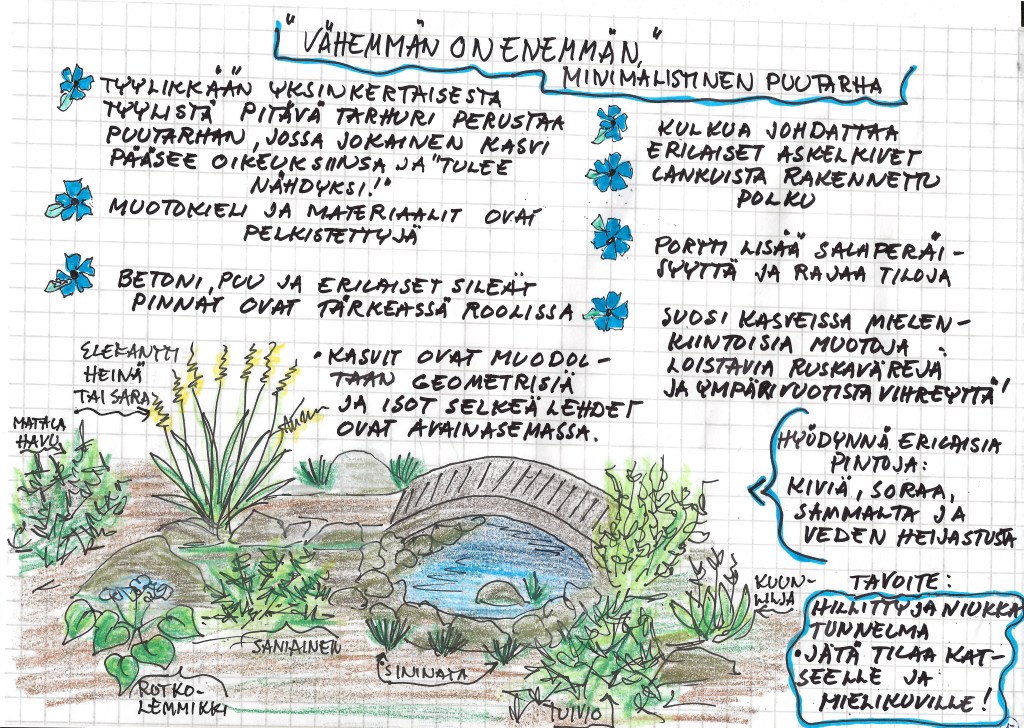 "VÄHEMMÄN ON ENEMMÄN,"
MINIMALISTINEN PUUTARHA
TYYLIKKÄÄN YKSINKERTAISESTA
TYYLISTÄ PITÄVÄ TARHURI PERUSTAA
PUUTARHAN, JOSSA JOKAINEN KASVI
PÄÄSEE OIKEUKSIINSA JA "TULEE
NÄHDYKSI!"
MUOTOKIELI JA MATERIAALIT OVAT
PELKISTETTYJÄ
BETONI, PUU JA ERILAISET SILEÄT
PINNAT OVAT TÄRKEÄSSÄ ROOLISSA
• KASVIT OVAT MUODOL-
TAAN GEOMETRISIÄ
JA ISOT SELKEÄLEHDET
OVAT AVAINASEMASSA.
KULKUA JOHDATTAA
ERILAISET ASKELKIVET
LANKUISTA RAKENNETTU
POLKU
PORTTI LISÄÄ SALAPERÄI-
SYYTTÄ JA RAJAA TILOJA
SUOSI KASVEISSA MIELEN-
KIINTOISIA MUOTOJA,
LOISTAVIA RUSKAVÄREJÄ
JA YMPÄRIVUOTISTA VIHREYTTÄ!
HYÖDYNNÄ ERILAISIA
PINTOJA:
KIVIÄ, SORAA,
SAMMALTA JA
VEDEN HEIJASTUSTA
TAVOITE:
HILLITTY JA NIUKKA
TUNNELMA
• JÄTÄ TILAA KAT-
SEELLE JA
MIELIKUVILLE!
ELEFANTTI
HEINÄ
TAI SARA
MATALA
HAVU
ROTKO-
LEMMIKKI
SANIAINEN
SININATA
TUIVIO
KUUN-
LILJA